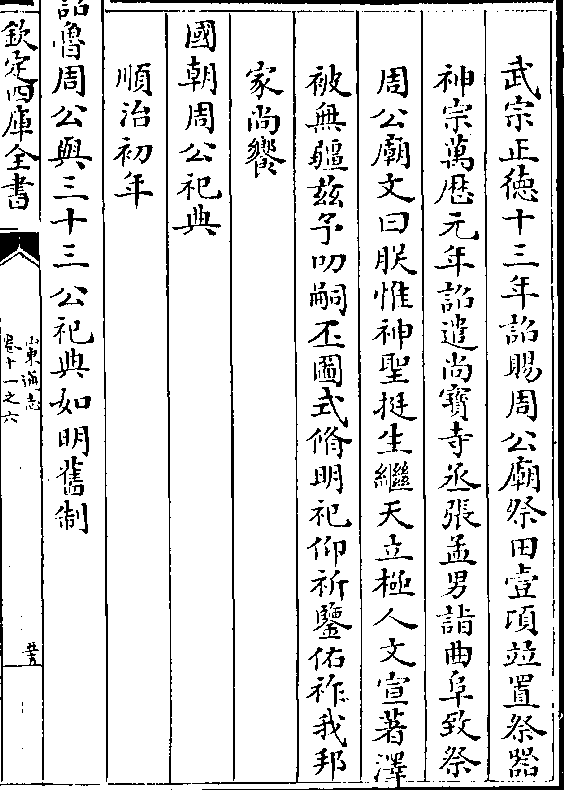 武宗正徳十三年詔賜周公廟祭田壹項竝置祭器
神宗萬厯元年詔遣尚寶寺丞張孟男詣曲阜致祭
周公廟文曰朕惟神聖挺生繼天立極人文宣著澤
被無疆茲予叨嗣丕圖式脩明祀仰祈鑒佑祚我邦
家尚饗
國朝周公祀典
順治初年
詔魯周公與三十三公祀典如明舊制
欽定四庫全書
山東通志
卷十一之六